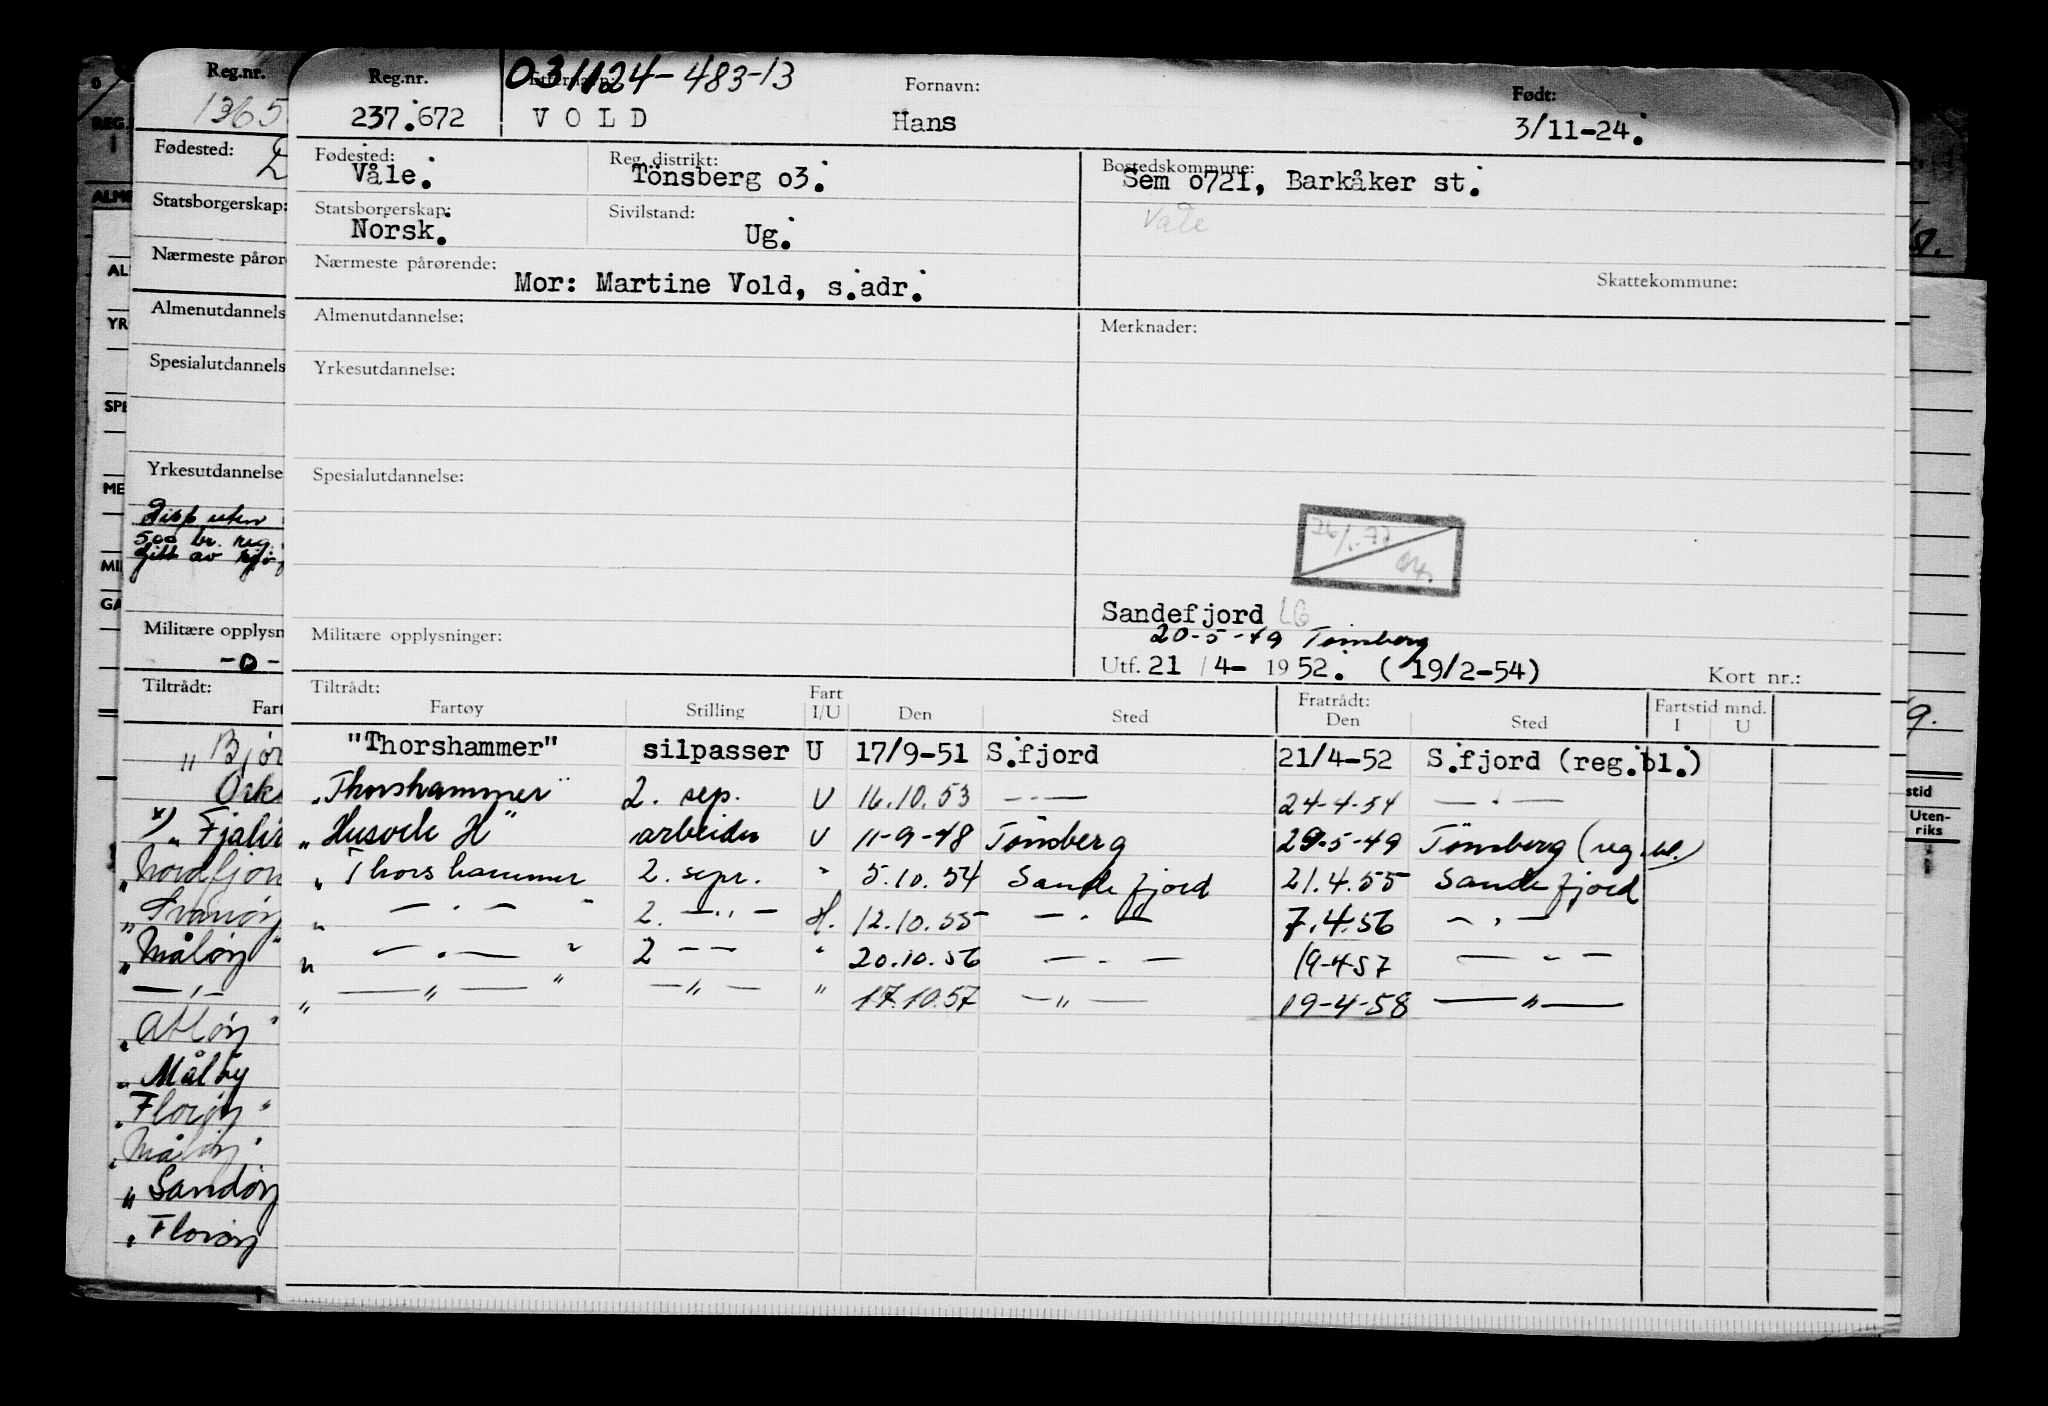 Reg.nr.
1365
Fødested:
Statsborgerskap:
Nærmeste pårør
Almenutdannels
Spesialutdannels
Yrkesutdannelse
Disp uten
500 br. reg.
gitt av
Militære opplysn
-0-
Tiltrådt:
Fart
„ Bjør
Ork
x) „ Fjali
„ Nordfjor
„ Svanøy
„ Måløy "
— „ —
„ Atløy "
„ Måløy
„ Florøy "
„ Måløy "
„ Sandøy
„ Florøy
Reg.nr. Etternavn: 031124-483-13 Fornavn: Født:
237.672 VOLD Hans 3/11-24.
Fødested: Reg. distrikt: Bostedskommune:
Våle. Tönsberg o3. Sem o721, Barkåker st.
Statsborgerskap: Sivilstand: Våle
Norsk. Ug.
Nærmeste pårørende: Skattekommune:
Mor: Martine Vold, s.adr.
Almenutdannelse: Merknader:
Yrkesutdannelse:
Spesialutdannelse:
Sandefjord LG
Militære opplysninger: 20-5-49 Tønsberg
Utf. 21 / 4- 1952. ( 19/2-54) Kort nr.:
Tiltrådt: Fart Fratrådt: Fartstid mnd.
Fartøy Stilling I/U Den Sted Den Sted I U
"Thorshammer" silpasser U 17/9-51 S.fjord 21/4-52 S.fjord (reg.bl.)
„Thorshammer" 2. sep. U 16.10.53 — " — 24-4-54 — " —
„Husvik H" arbeider U 11-9-48 Tønsberg 29-5-49 Tønsberg (reg.bl.)
„ Thorshammer 2. sepr. " 5.10.54 Sandefjord 21.4.55 Sandefjord
„ — " — " 2. — " — H. 12.10.55 — " — 7.4.56 — " —
„ — " — " 2 — — " 20.10.56 — " — 19-4-57 — " —
„ — " — " — " — " 17.10.57 — " — 19-4-58 — " —
stid
Uten-
riks